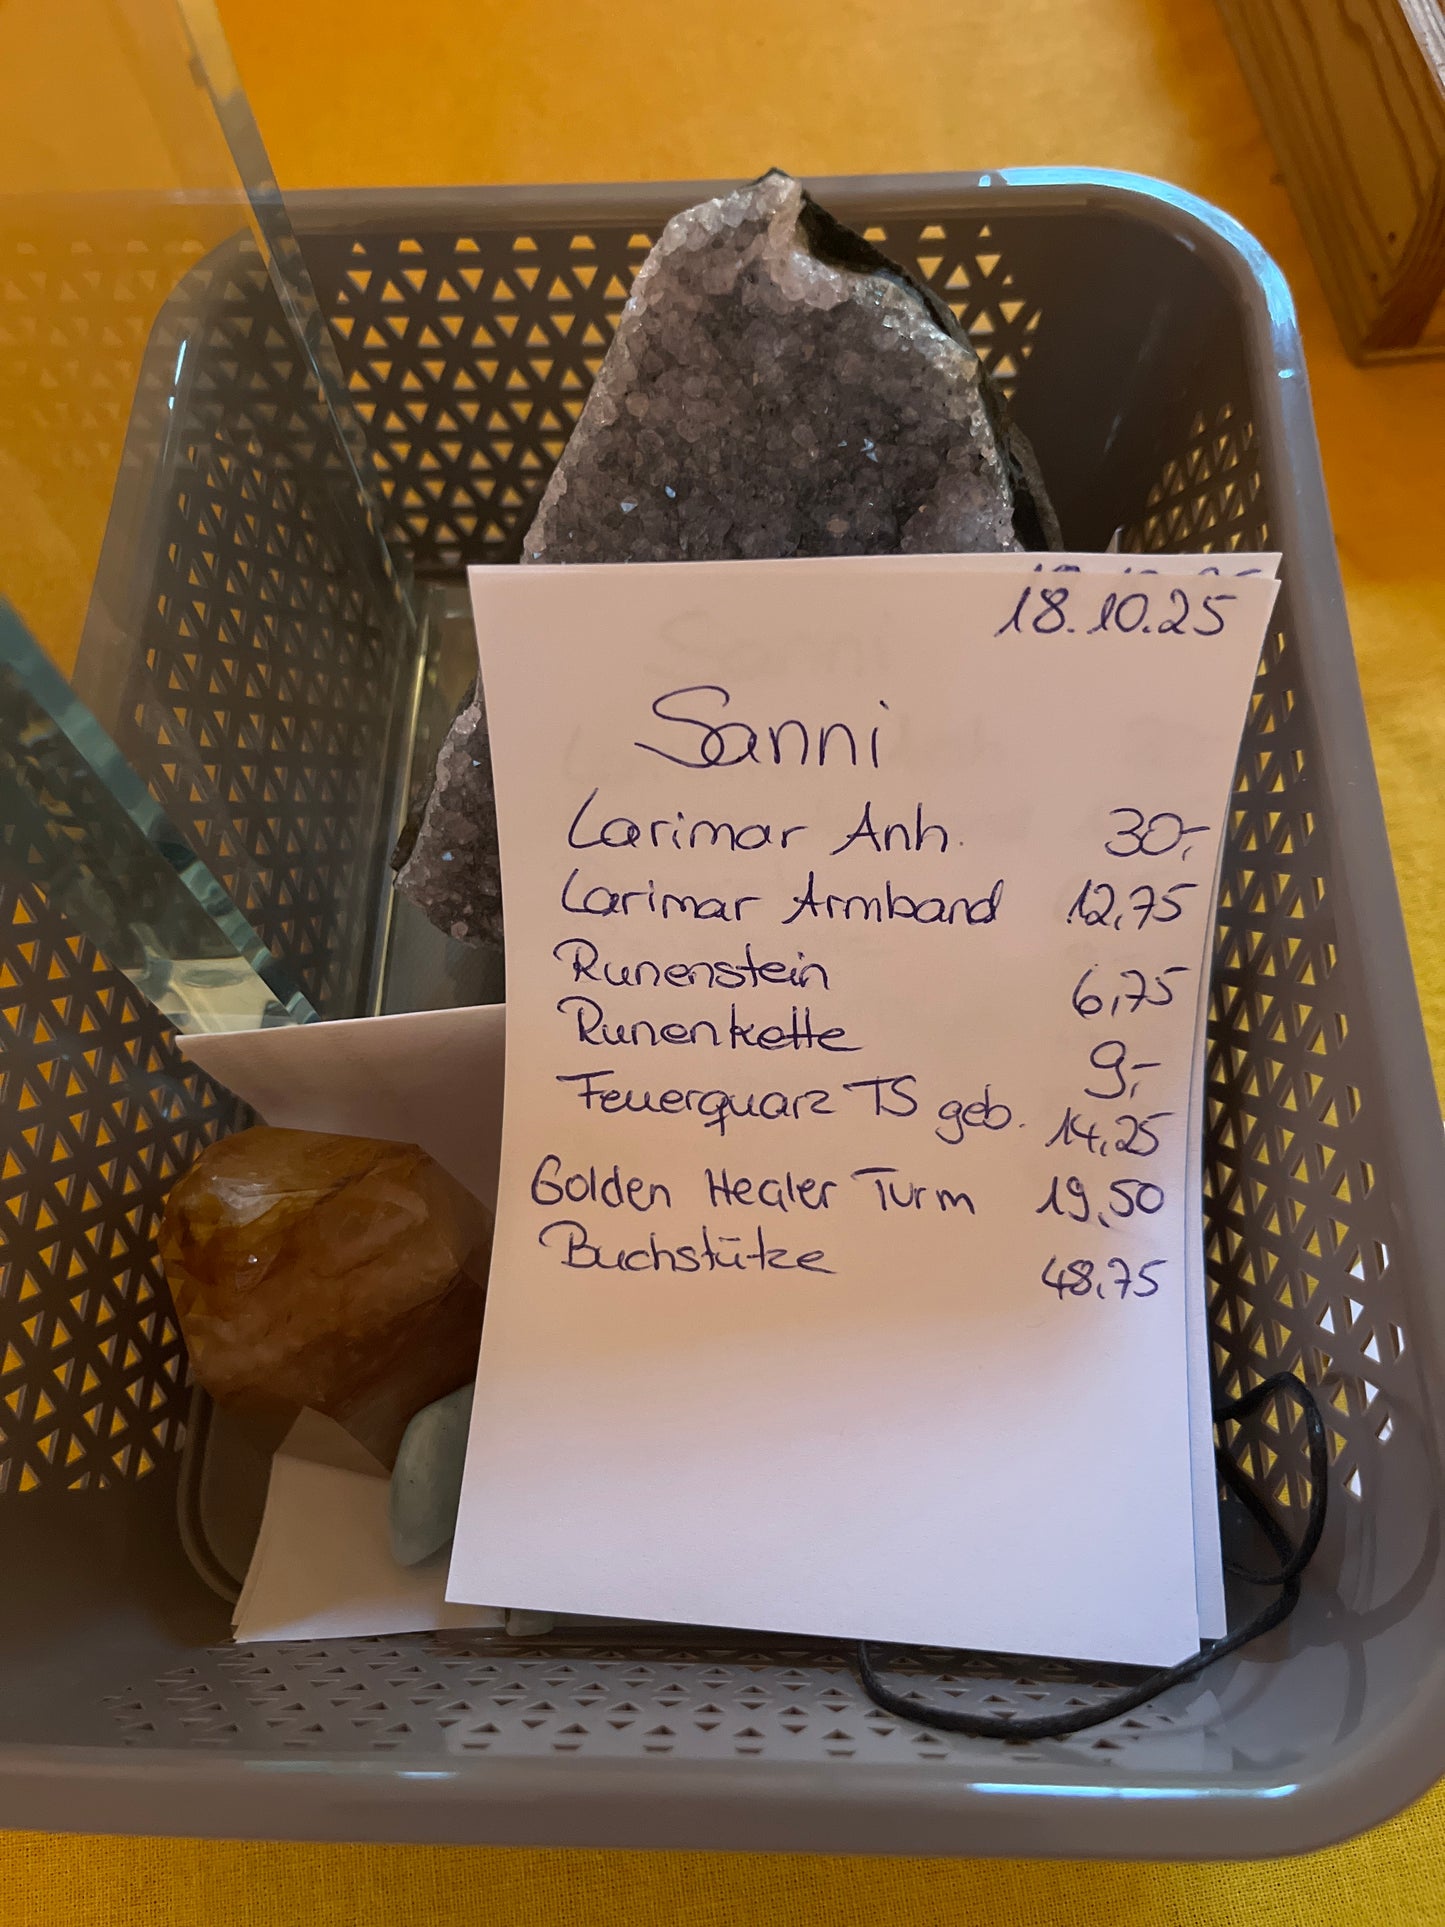 18.10.25
Sanni
Larimar Anh. 30,-
Larimar Armband 12,75
Runenstein 6,75
Runenkette 9,-
Feuerquarz TS geb. 14,25
Golden Healer Turm 19,50
Buchstütze 48,75